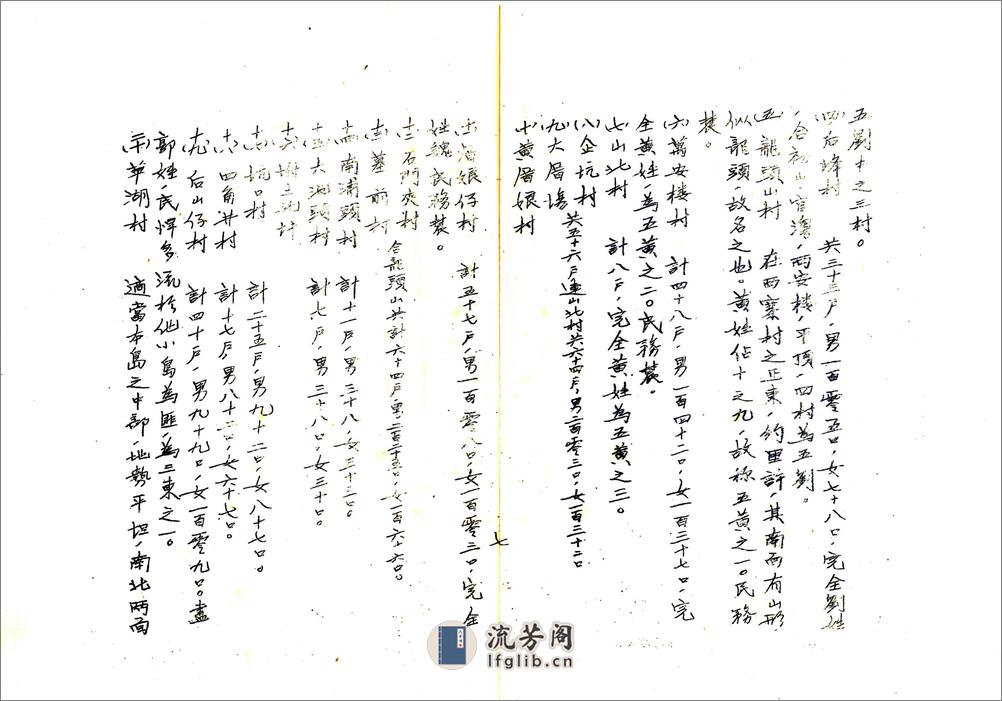 五劉中之三村。
(四)后峰村　共三十三戶，男一百零五口，女七十八口，完全劉姓
，合和山，官澳，西安楼，平頂，四村為五劉。
(五)龍頭山村　在西寨村之正東，約里許，其南面有山形
似龍頭，故名之也。黃姓佔十之九，故称五黃之一。民務
農。
(六)萬安楼村　計四十八戶，男一百四十二口，女一百三十七口，完
全黃姓，為五黃之二。民務農。
(七)山北村　計八戶，完全黃姓為五黃之三。
(八)企坑村
(九)大厝場　共五十六戶連山北村共六十四戶，男二百零三口，女一百三十二口
(十)黃厝娘村
娘仔村　計五十七戶，男一百零八口，女一百零三口，完全
姓魏，民務農。
(十二)石門夾村
(十三)墓前村　合龍頭山共計六十四戶，男二百二十五口，女一百六十六口。
(十四)南浦頭村　計十一戶，男三十八，女三十二口。
(十五)大池頭村　計七戶，男三十八口，女三十口。
(十六)
(十七)坑口村　計二十五戶，男九十二口，女八十七口。
(十八)四角井村　計十七戶，男八十二口，女六十七口。
(十九)后山仔村　計四十戶，男九十九口，女一百零九口。盡
郭姓，民悍多流於他小島為匪，為三東之一。
(二十)華湖村　適當本島之中部，地勢平坦，南北两面
七
流芳阁
lfglib.cn